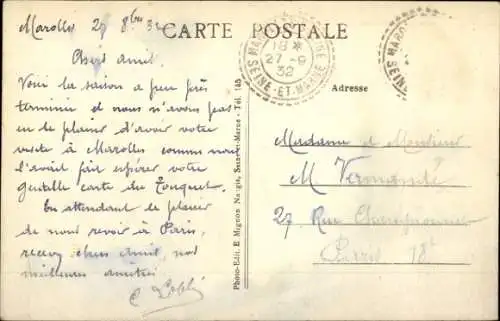 Marolles 27 8bre 32
CARTE POSTALE
Chers amis.
Voici la saison a peu près
terminée et nous n'avons pas
eu le plaisir d'avoir votre
visite à Marolles comme nous
l'avait fait espérer votre
gentille carte du Touquet.
En attendant le plaisir
de nous revoir à Paris,
recevez chers amis, nos
meilleures amitiés
18 *
27-9
32
SEINE-ET-MARNE
MARO
SEINE
Adresse
Madame et Monsieur
M Vermande
27 Rue Championnet
Paris 18e
Photo-Edit. E. Mignon Nangis, Seine-et-Marne - Tél. 145